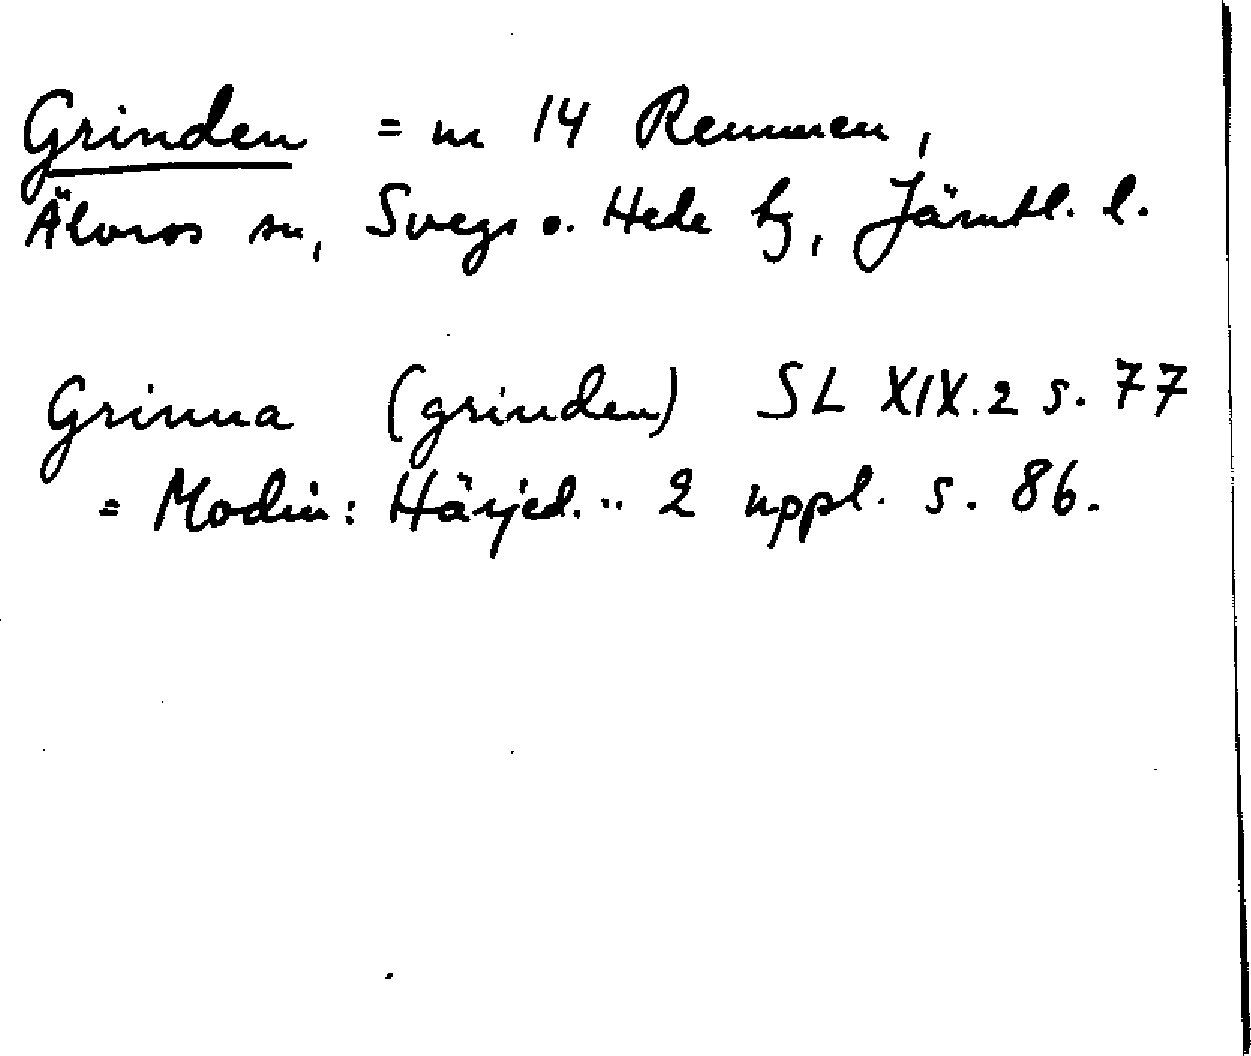 Grinden = nr 14 Remmen,
Älvros sn, Svegs o. Hede hg, Jämtl. l.
Grinna (grinden) SL XIX.2 s. 77
= Modin: Härjed... 2 uppl. s. 86.